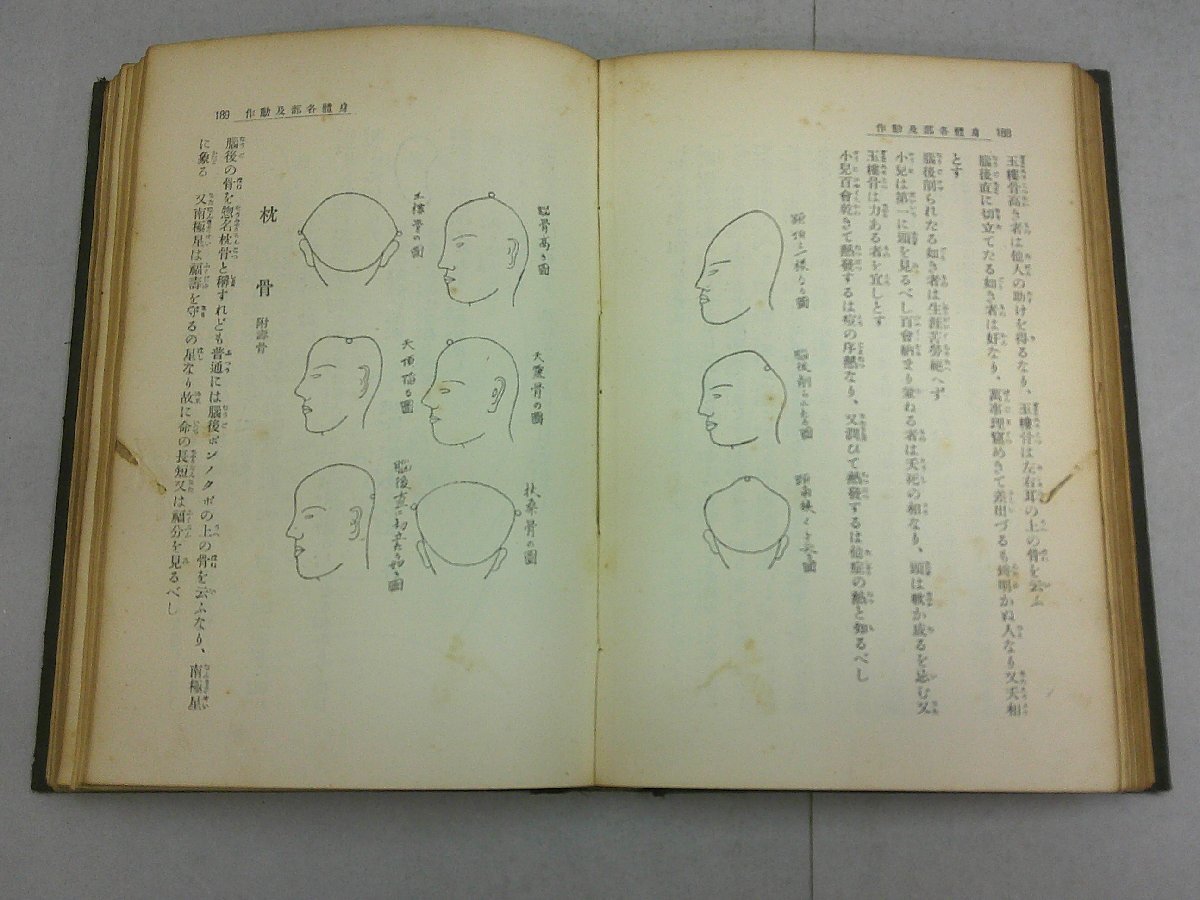 身體各部及動作 188
玉樓骨高き者は他人の助けを得るなり、玉樓骨は左右耳の上の骨を云ふ
腦後直に切立てたる如き者は奸なり、萬事理窟めきて差出づるも
人なり又夭相
とす
腦後削られたる如き者は生涯苦勞絕へず
小兒は第一に頭を見るべし百會
者は夭死の相なり、頭は
を忌む又
玉樓骨は力ある者を宜しとす
小兒百會乾きて熱發するは痘の序熱なり、又潤ひて熱發するは他症の熱と知るべし
腦後削られたる圖
身體各部及動作 189
腦骨高き圖
玉樓骨の圖
天熏骨の圖
天頂陷る圖
扶桑骨の圖
腦後直に切立たる如き圖
枕骨 附壽骨
腦後の骨を惣名枕骨と稱すれども普通には腦後ボンノクボの上の骨を云ふなり、南極星
に象る 又南極星は福壽を守るの星なり故に命の長短又は福分を見るべし